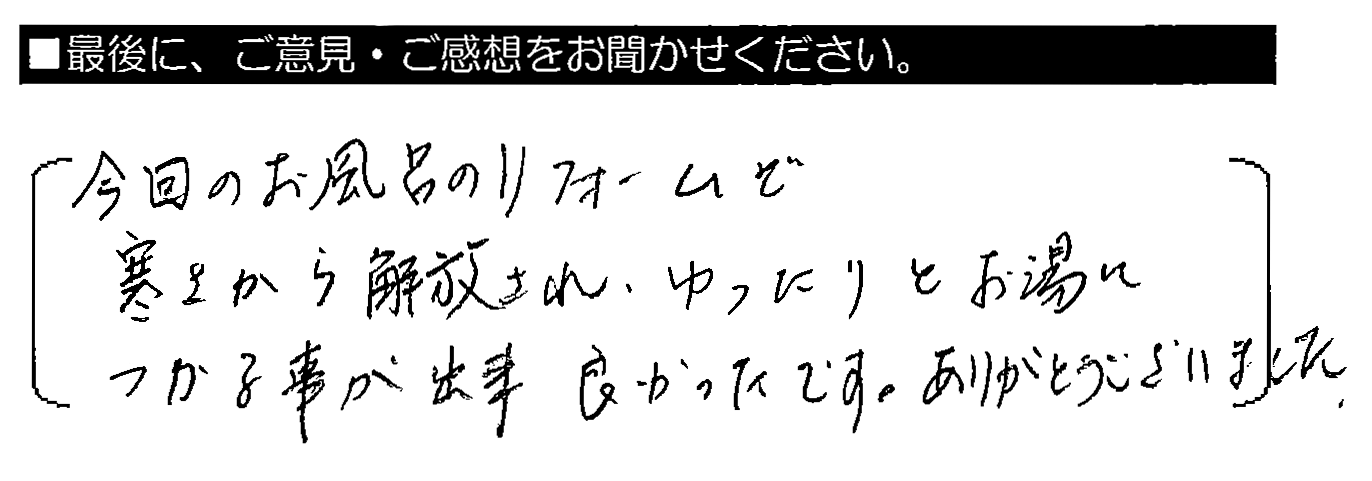 ■最後に、ご意見・ご感想をお聞かせください。
今回のお風呂のリフォームで
寒さから解放され、ゆったりとお湯に
つかる事が出来良かったです。ありがとうございました。